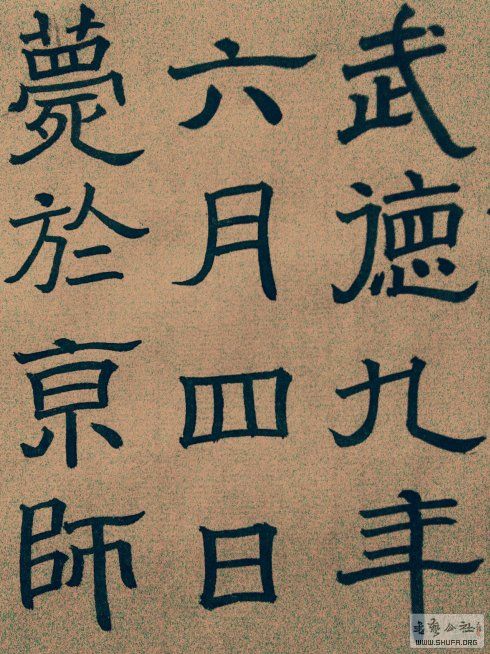 武德九年
六月四日
薨於京師
書藝公社
WWW.SHUFA.ORG